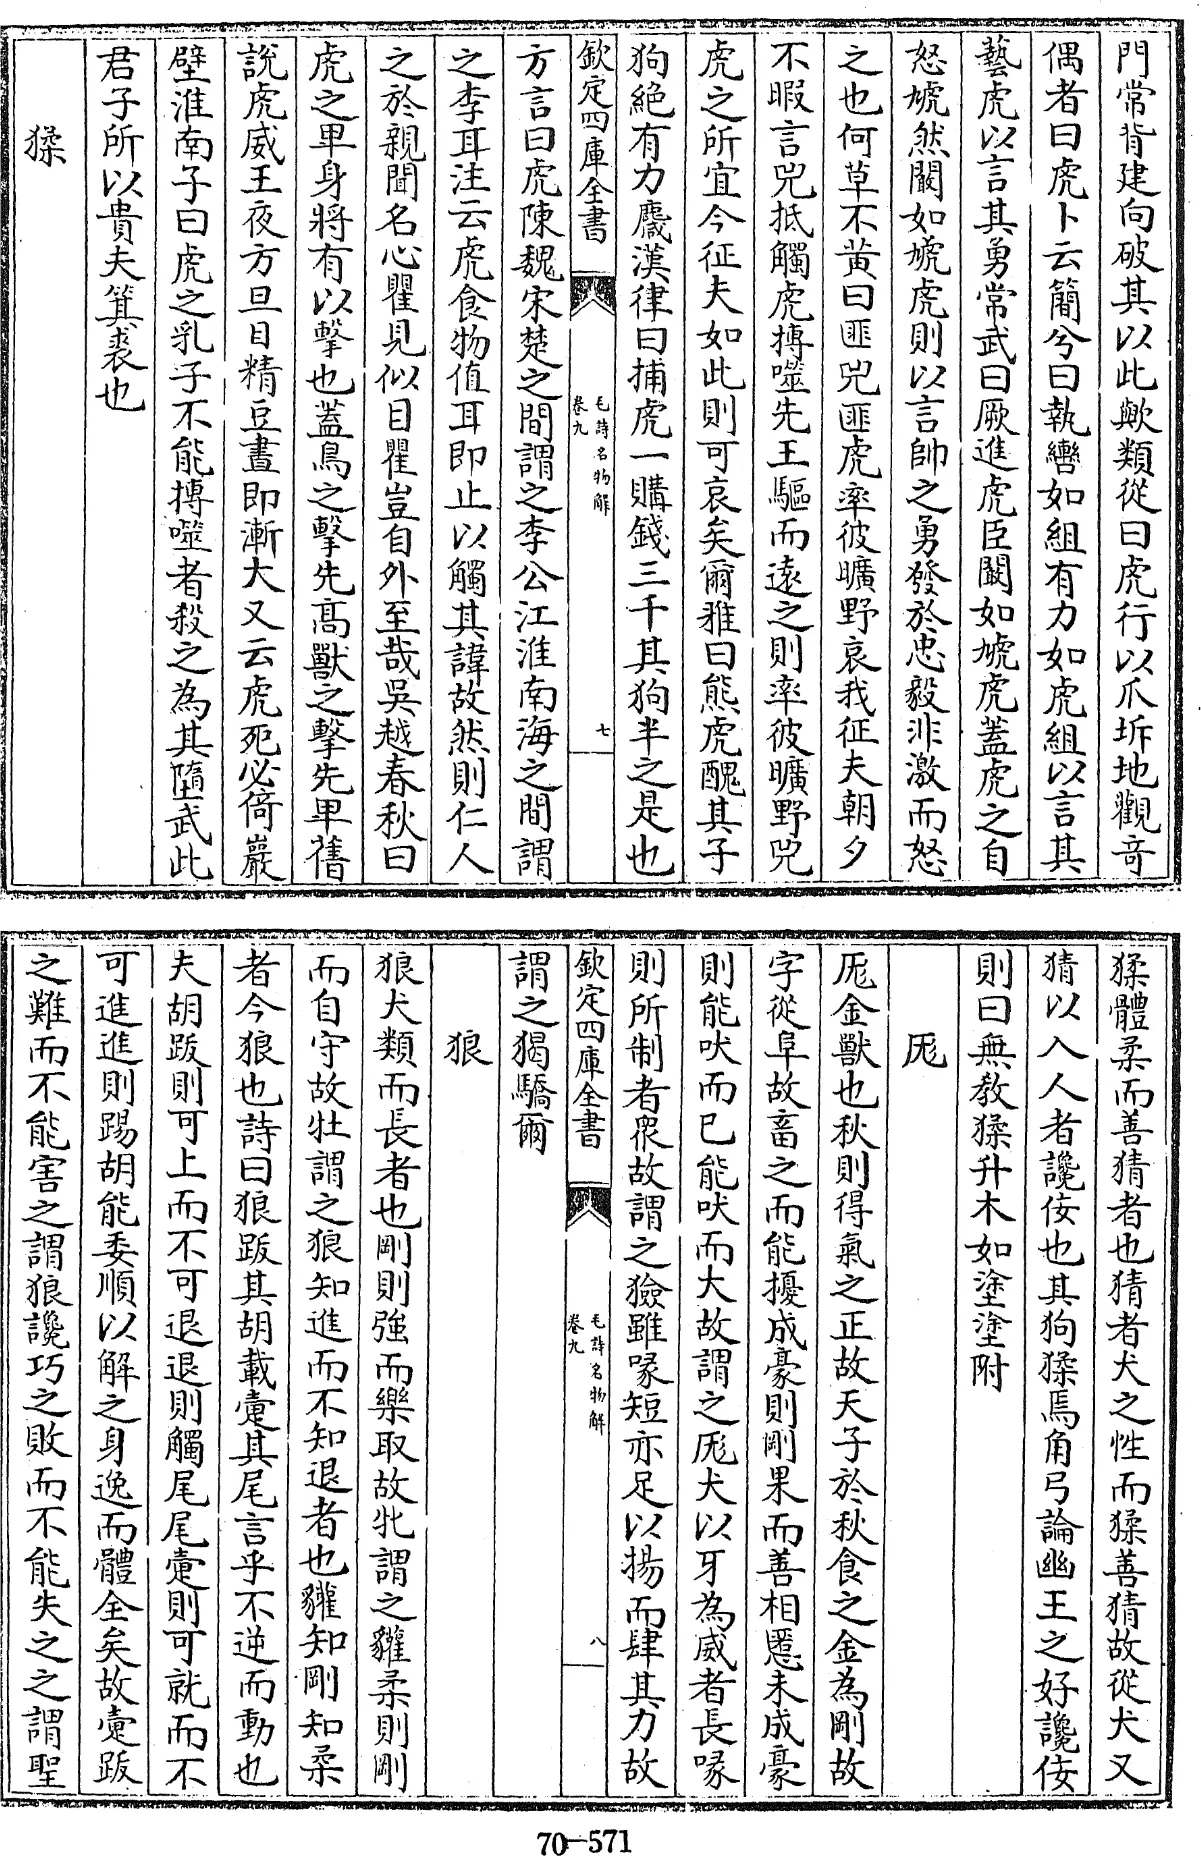 門常背建向破其以此歟類從曰虎行以爪坼地觀奇
偶者曰虎卜云簡兮曰執轡如組有力如虎組以言其
藝虎以言其勇常武曰厥進虎臣闞如虓虎蓋虎之自
怒虓然闞如虓虎則以言帥之勇發於忠毅非激而怒
之也何草不黃曰匪兕匪虎率彼曠野哀我征夫朝夕
不暇言兕抵觸虎摶噬先王驅而遠之則率彼曠野兕
虎之所宜今征夫如此則可哀矣爾雅曰熊虎醜其子
狗絶有力麙漢律曰捕虎一購錢三千其狗半之是也
欽定四庫全書
毛詩名物解
卷九
七
方言曰虎陳魏宋楚之間謂之李公江淮南海之間謂
之李耳注云虎食物值耳即止以觸其諱故然則仁人
之於親聞名心瞿見似目瞿豈自外至哉吳越春秋曰
虎之卑身將有以擊也蓋鳥之擊先高獸之擊先卑舊
說虎威王夜方旦目精豆晝即漸大又云虎死必倚巖
壁淮南子曰虎之乳子不能摶噬者殺之為其墮武此
君子所以貴夫箕裘也
猱
猱體柔而善猜者也猜者犬之性而猱善猜故從犬又
猜以入人者讒佞也其狗猱焉角弓論幽王之好讒佞
則曰無教猱升木如塗塗附
厖
厖金獸也秋則得氣之正故天子於秋食之金為剛故
字從阜故畜之而能擾成豪則剛果而善相慝未成豪
則能吠而已能吠而大故謂之厖犬以牙為威者長喙
則所制者眾故謂之獫雖喙短亦足以揚而肆其力故
欽定四庫全書
毛詩名物解
卷九
八
謂之猲驕爾
狼
狼犬類而長者也剛則強而樂取故牝謂之貛柔則剛
而自守故牡謂之狼知進而不知退者也貛知剛知柔
者今狼也詩曰狼跋其胡載疐其尾言乎不逆而動也
夫胡跋則可上而不可退退則觸尾尾疐則可就而不
可進進則踢胡能委順以解之身逸而體全矣故疐跋
之難而不能害之謂狼讒巧之敗而不能失之之謂聖
70-571